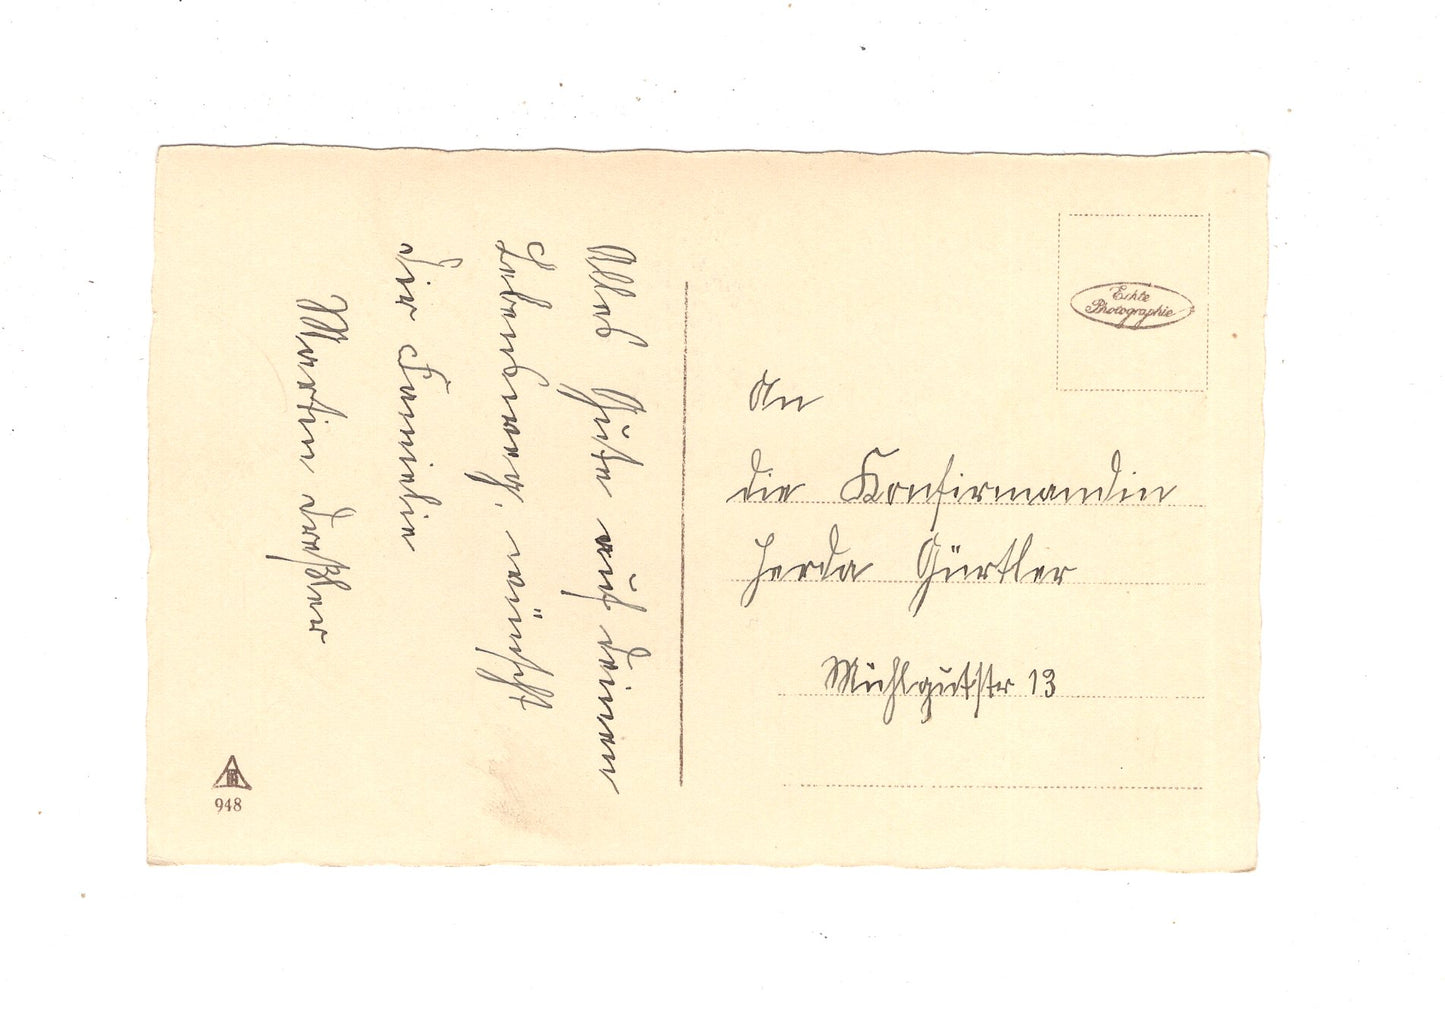 Alles Gute auf deinem
Lebensweg, wünscht
dir Familie
Martin Dreßler
An
die Konfirmandin
Herda Gürtler
Mühlgutstr 13
Echte
Photographie
948